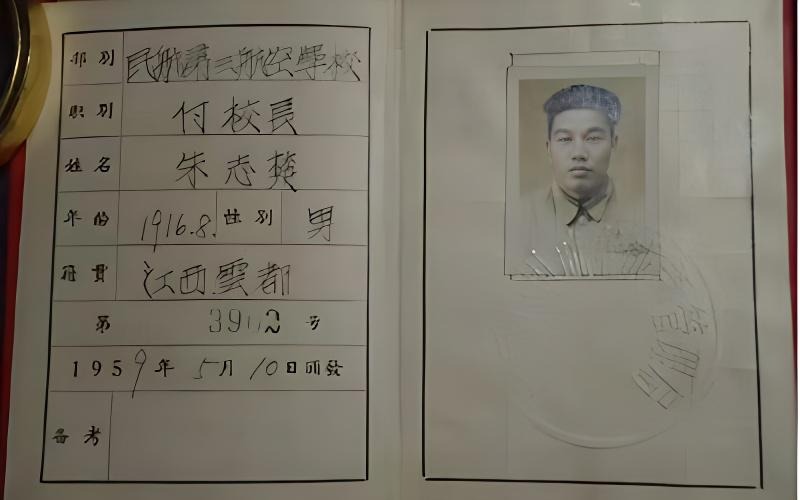 部别 民航第三航空學校
职别 付校長
姓名 朱志
年龄 1916.8. 性别 男
籍貫 江西雲都
第 号
1959年5月10日颁發
备考
管理局